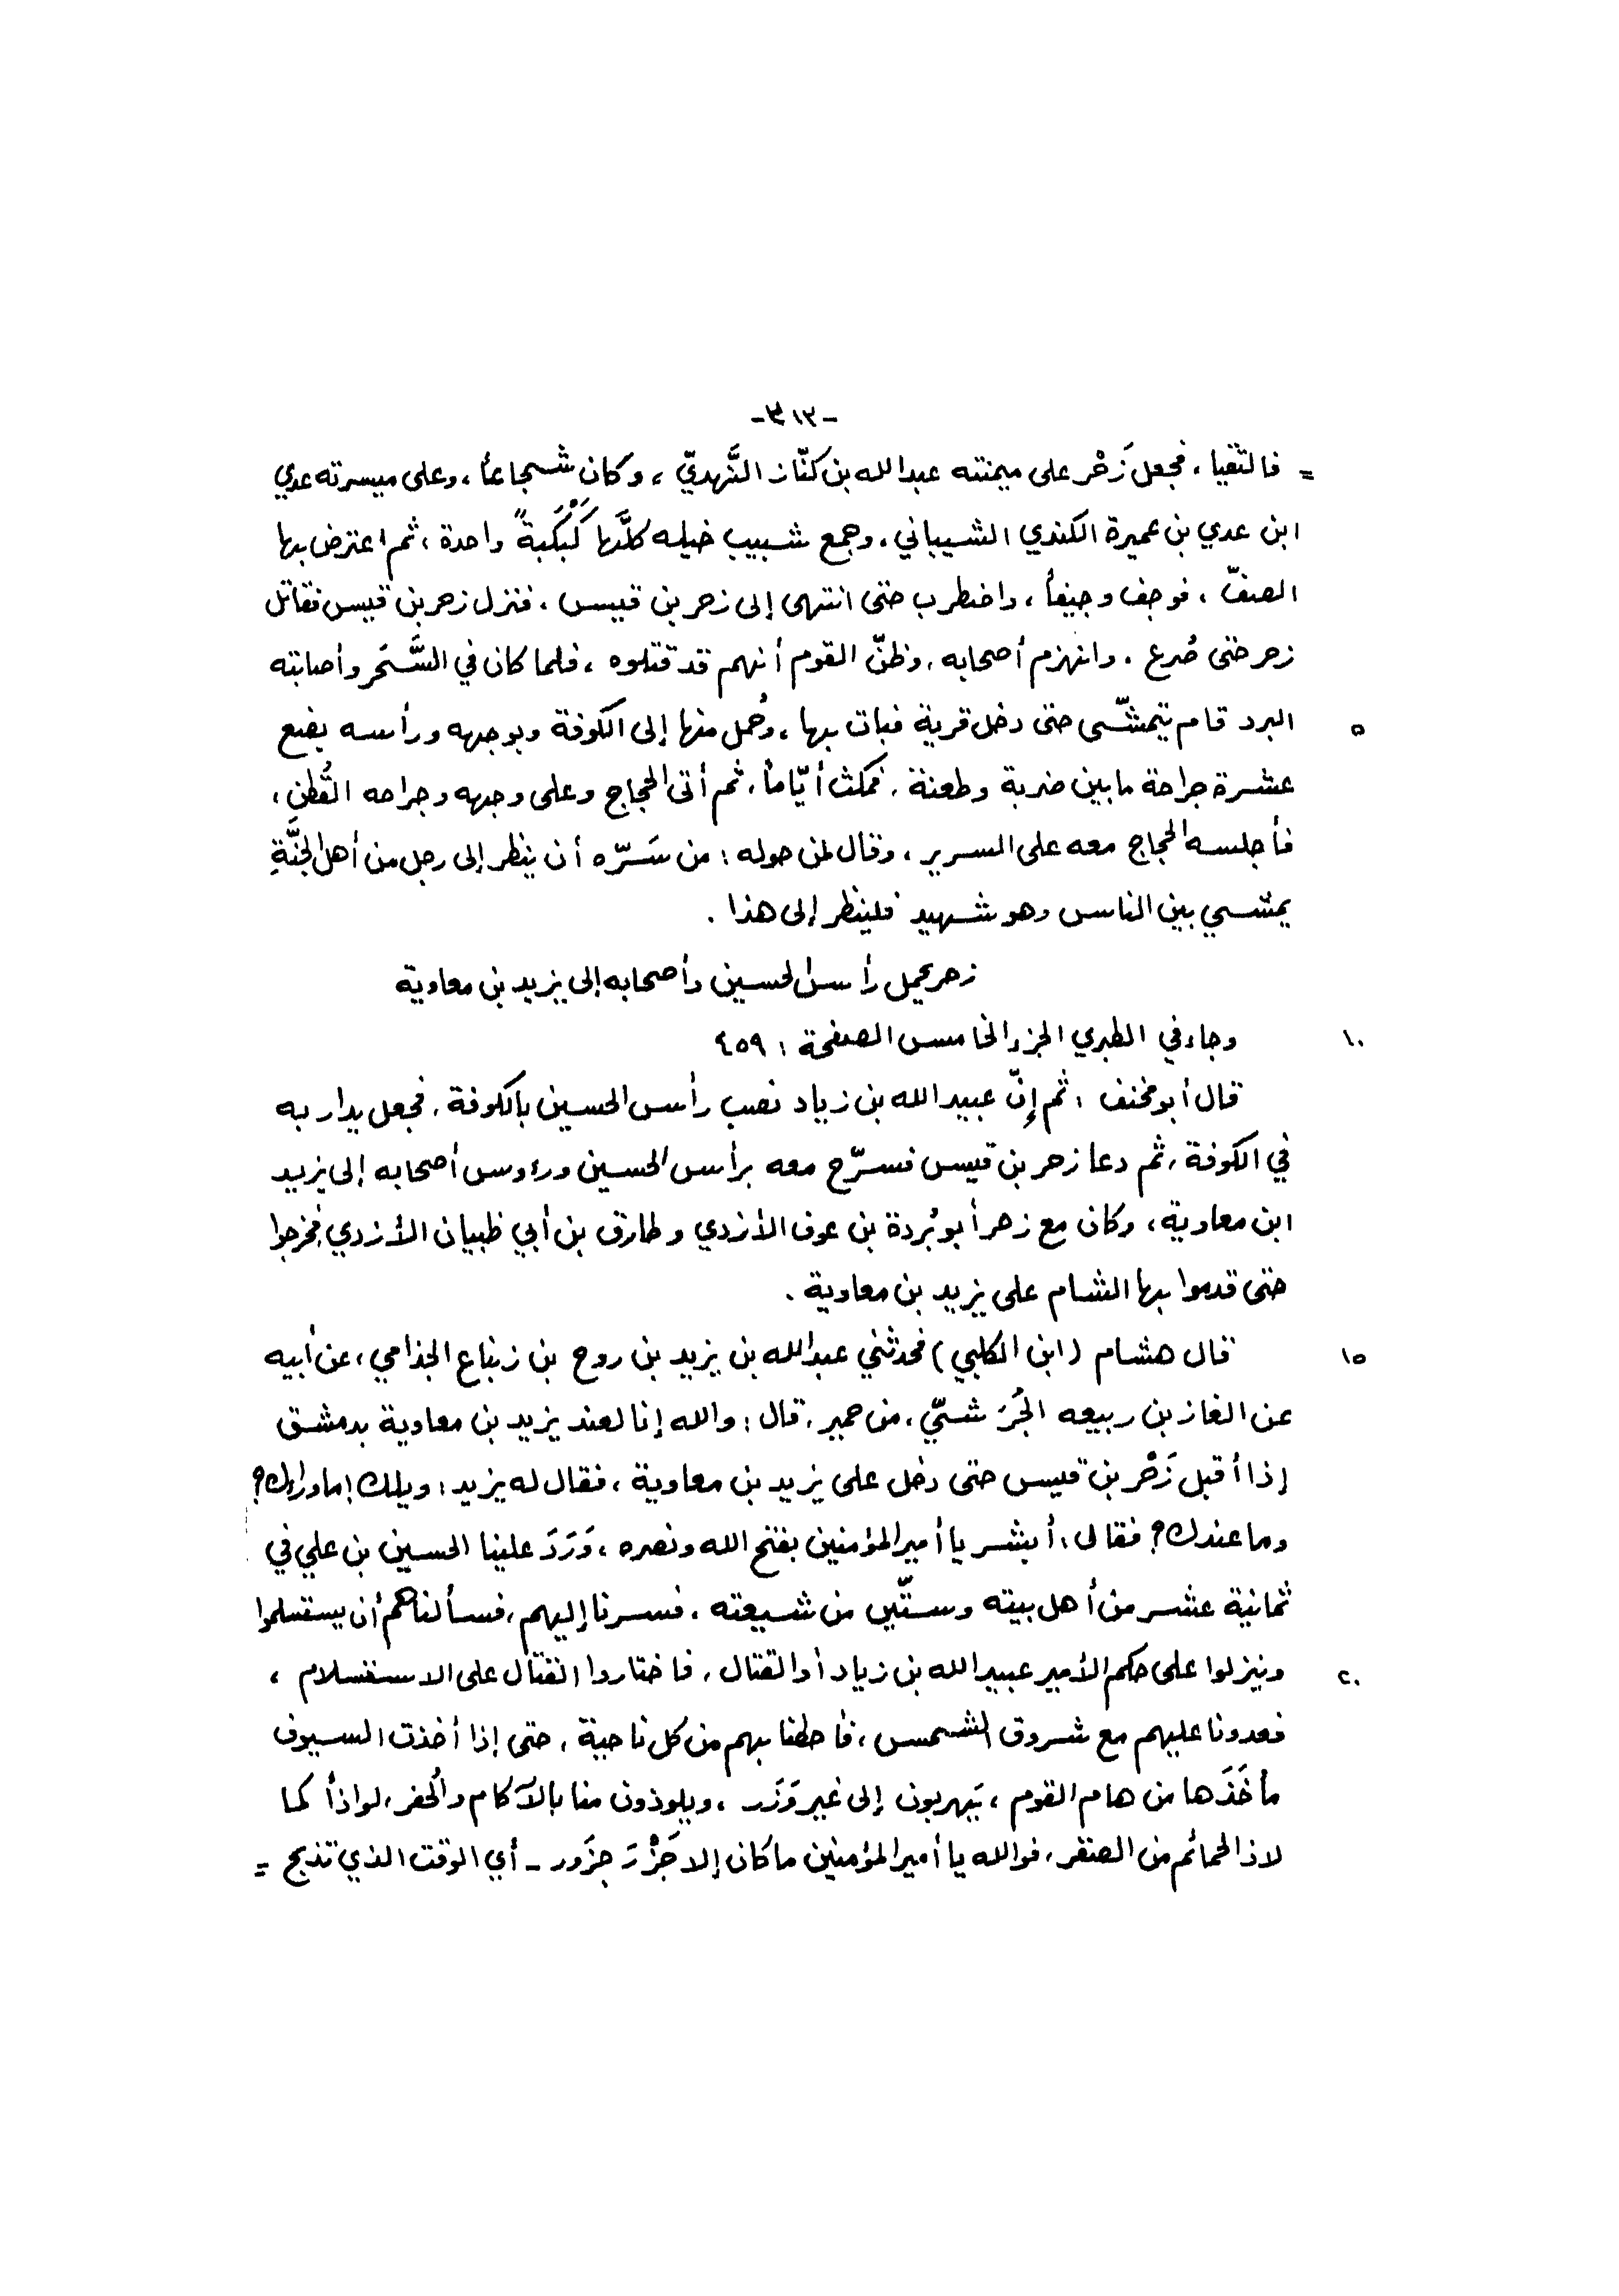 -٣١٣-
= فالتقيا، فجعل زَحْر على ميمنته عبدالله بن كنّاز النَّهديّ، وكان شجاعاً، وعلى ميسرته عدي
ابن عدي بن عميرة الكندي الشيباني، وجمع شبيب خيله كلَّها كَبْكَبةً واحدة، ثم اعترض بها
الصفّ، فوجف وجيفاً، واضطرب حتى انتهى إلى زحر بن قيس، فنزل زحر بن قيس فقاتل
زحر حتى صُرع. وانهزم أصحابه، وظنّ القوم أنهم قد قتلوه، فلما كان في السَّحَر وأصابته
٥ البرد قام يتمشّى حتى دخل قرية فبات بها، وحُمل منها إلى الكوفة وبوجهه ورأسه بضع
عشرة جراحة ما بين ضربة وطعنة، فمكث أيّاماً، ثم أتى الحجاج وعلى وجهه وجراحه القُطن،
فأجلسه الحجاج معه على السرير، وقال لمن حوله: من سَرّه أن ينظر إلى رجل من أهل الجنَّةِ
يمشي بين الناس وهو شهيد فلينظر إلى هذا.
زحر يحمل رأس الحسين وأصحابه إلى يزيد بن معاوية
١٠ وجاء في الطبري الجزء الخامس الصفحة: ٤٥٩
قال أبو مخنف: ثم إنّ عبيد الله بن زياد نصب رأس الحسين بالكوفة، فجعل يدار به
في الكوفة، ثم دعا زحر بن قيس فسرّح معه برأس الحسين ورءوس أصحابه إلى يزيد
ابن معاوية، وكان مع زحر أبو بُردة بن عوف الأزدي وطارق بن أبي ظبيان الأزدي، فخرجوا
حتى قدموا بها الشام على يزيد بن معاوية.
١٥ قال هشام (ابن الكلبي) فحدثني عبدالله بن يزيد بن روح بن زنباع الجذامي، عن أبيه
عن الغاز بن ربيعه الجُرَشيّ، من حمير، قال: والله إنا لعند يزيد بن معاوية بدمشق
إذا أقبل زَحْر بن قيس حتى دخل على يزيد بن معاوية، فقال له يزيد: ويلك! ما وراءك؟
وما عندك؟ فقال: أبشر يا أمير المؤمنين بفتح الله ونصره، وَرَدَ علينا الحسين بن علي في
ثمانية عشر من أهل بيته وستّين من شيعته، فسرنا إليهم، فسألناهم أن يستسلموا
٢٠ وينزلوا على حكم الأمير عبيدالله بن زياد أو القتال، فاختاروا القتال على الاستسلام،
فعدونا عليهم مع شروق الشمس، فأحطنا بهم من كل ناحية، حتى إذا أخذت السيوف
مأخَذَها من هام القوم، يَهربون إلى غير وَزَر، ويلوذون منا بالآكام والحُفر، لواذاً كما
لاذ الحمائم من الصقر، فوالله يا أمير المؤمنين ما كان إلا جَزْرَ جزَور - أي الوقت الذي تذبح =